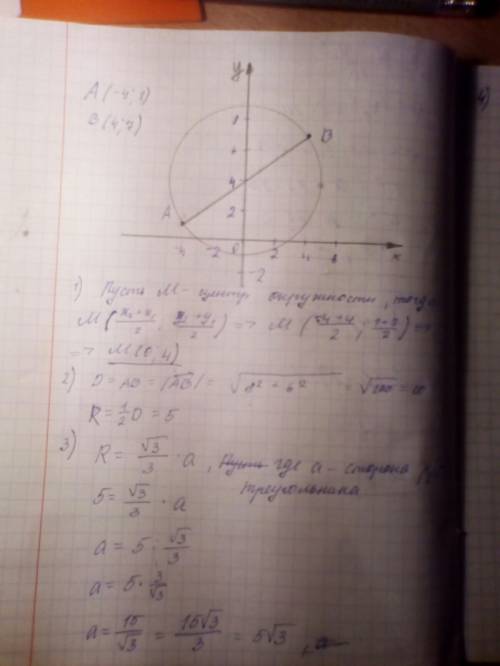 y
A(-4;1)
B(4;7)
8
B
6
4
A
2
-4 -2 0 2 4 6 x
-2
1) Пусть M - центр окружности, тогда
M((x₂+x₁)/2; (y₂+y₁)/2) => M((-4+4)/2; (1+7)/2) =>
=> M(0; 4)
2) D = AB = |AB| = √(8² + 6²) = √100 = 10
R = 1/2 D = 5
3) R = √3/3 · a, где a - сторона
треугольника
5 = √3/3 · a
a = 5 : √3/3
a = 5 · 3/√3
a = 15/√3 = 15√3/3 = 5√3
4)